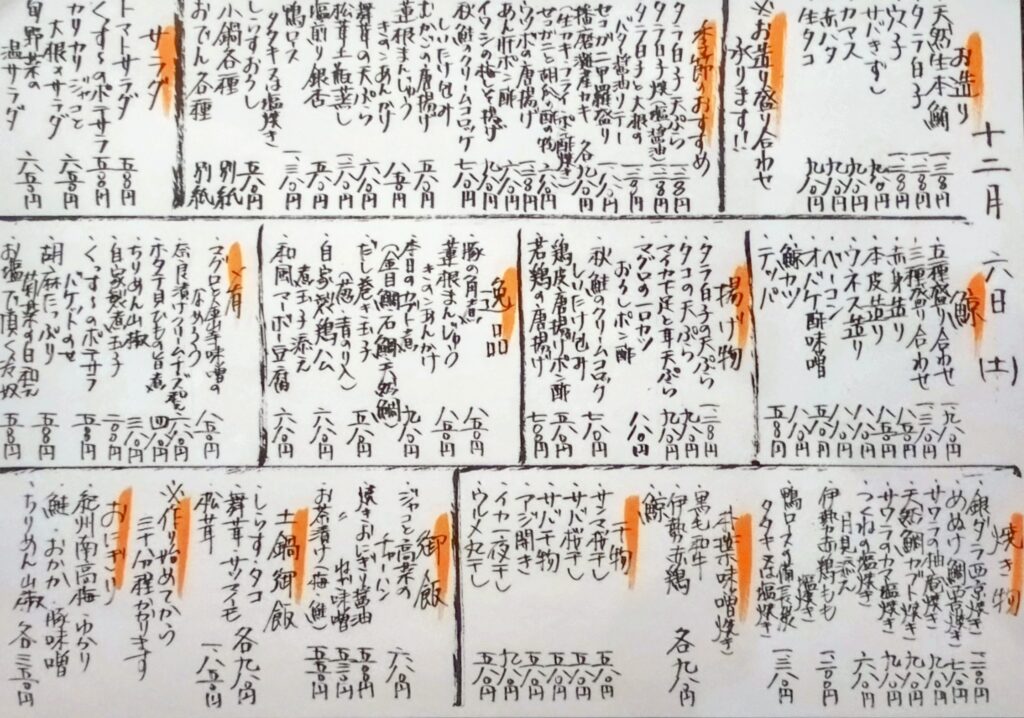 十二月 六日 (土)
お造り
・天然生本鮪 一、三八〇円
・タラ白子 一、二八〇円
・ウニ 一、二八〇円
・サバきずし 九八〇円
・カマス 九八〇円
・赤バタ
・生タコ 九八〇円
※お造り盛り合わせ
承ります!!
季節のおすすめ
・タラ白子天ぷら 一、二八〇円
・タラ白子焼(塩・醤油) 一、二八〇円
・タラ白子と大根の
バター醤油ソテー
・セコガニ甲羅盛り
・播磨灘産カキ 各九八〇円
(生カキ・フライ・ポン酢焼き)
・ウツボの唐揚げ
・あん肝ポン酢
・イワシの梅しそ揚げ 九八〇円
・秋鮭のクリームコロッケ 七八〇円
しいたけ包み
・むかごの唐揚げ 五八〇円
・蓮根まんじゅう 八五〇円
きのこあんかけ
・舞茸の天ぷら 六八〇円
・松茸土瓶蒸し
・塩煎り銀杏 五八〇円
・鴨ロース
タタキ又は塩焼き 一、三八〇円
・しらすおろし 五八〇円
・小鍋各種 別紙
・おでん各種 別紙
サラダ
・トマトサラダ 五五〇円
・くっすーのポテサラ 五八〇円
・カリカリジャコと
大根のサラダ 六五〇円
・旬野菜の
温サラダ 六五〇円
鯨
・五種盛り合わせ
・三種盛り合わせ
・赤身造り
・本皮造り
・ウネス造り
・ベーコン
・オバケ酢味噌
・鯨カツ
・テッパ 五八〇円
揚げ物
・タラ白子の天ぷら 一、二八〇円
・タコの天ぷら 九八〇円
・マイカ下足と耳天ぷら
・マグロの一口カツ 八八〇円
おろしポン酢
・秋鮭のクリームコロッケ 七八〇円
しいたけ包み
・鶏皮唐揚げポン酢 五八〇円
・若鶏の唐揚げ 七八〇円
逸品
・豚の角煮 八八〇円
・蓮根まんじゅう 八五〇円
きのこあんかけ
・本日のカブト煮 九八〇円
(金目鯛・石鯛・天然鯛)
・だし巻き玉子 五八〇円
(葱・青のり入)
・自家製鶏ハム 六八〇円
煮玉子添え
・和風マーボー豆腐 六八〇円
メ肴
・マグロと唐辛味噌の 八五〇円
なめろう
・奈良漬けクリームチーズ和え 六八〇円
・ホタテ貝ひもの旨煮 四八〇円
・ちりめん山椒 三八〇円
・自家製煮玉子 二〇〇円
・くっすーのポテサラ 五八〇円
バケットのせ
・胡麻たっぷり 五五〇円
菊菜の白和え
・お塩で頂く冷奴 五五〇円
焼き物
・銀ダラ西京焼き 一、二〇〇円
・あめぬけ鯛西京焼き 七八〇円
・サワラの柚庵焼き 九八〇円
・天然鯛カブト焼き 九八〇円
・サワラのカマ塩焼き 九八〇円
・つくねの塩焼き 六八〇円
月見そえ
・伊勢赤鶏もも
塩焼き
・鴨ロースの備長炭
タタキ又は塩焼き 一、三八〇円
(本造赤味噌焼き)
・黒毛和牛
・伊勢赤鶏 各九八〇円
・鯨
干物
・サンマ桜干し 五八〇円
・サバ桜干し 五八〇円
・サバ干物 五八〇円
・アジ開き 五八〇円
・イカ一夜干し 九八〇円
・ウルメ丸干し 五八〇円
御飯
・ジャコと高菜の
チャーハン 六八〇円
・焼きおにぎり醤油 五〇〇円
〃 ねぎ味噌 五五〇円
・お茶漬け(梅・鮭) 五五〇円
土鍋御飯
・しらす・タコ
・舞茸・サツマイモ 各九八〇円
・松茸 一、八五〇円
※作り始めてから
三十分程かかります
おにぎり
・紀州南高梅・ゆかり
・鮭・おかか・豚味噌
・ちりめん山椒 各三五〇円